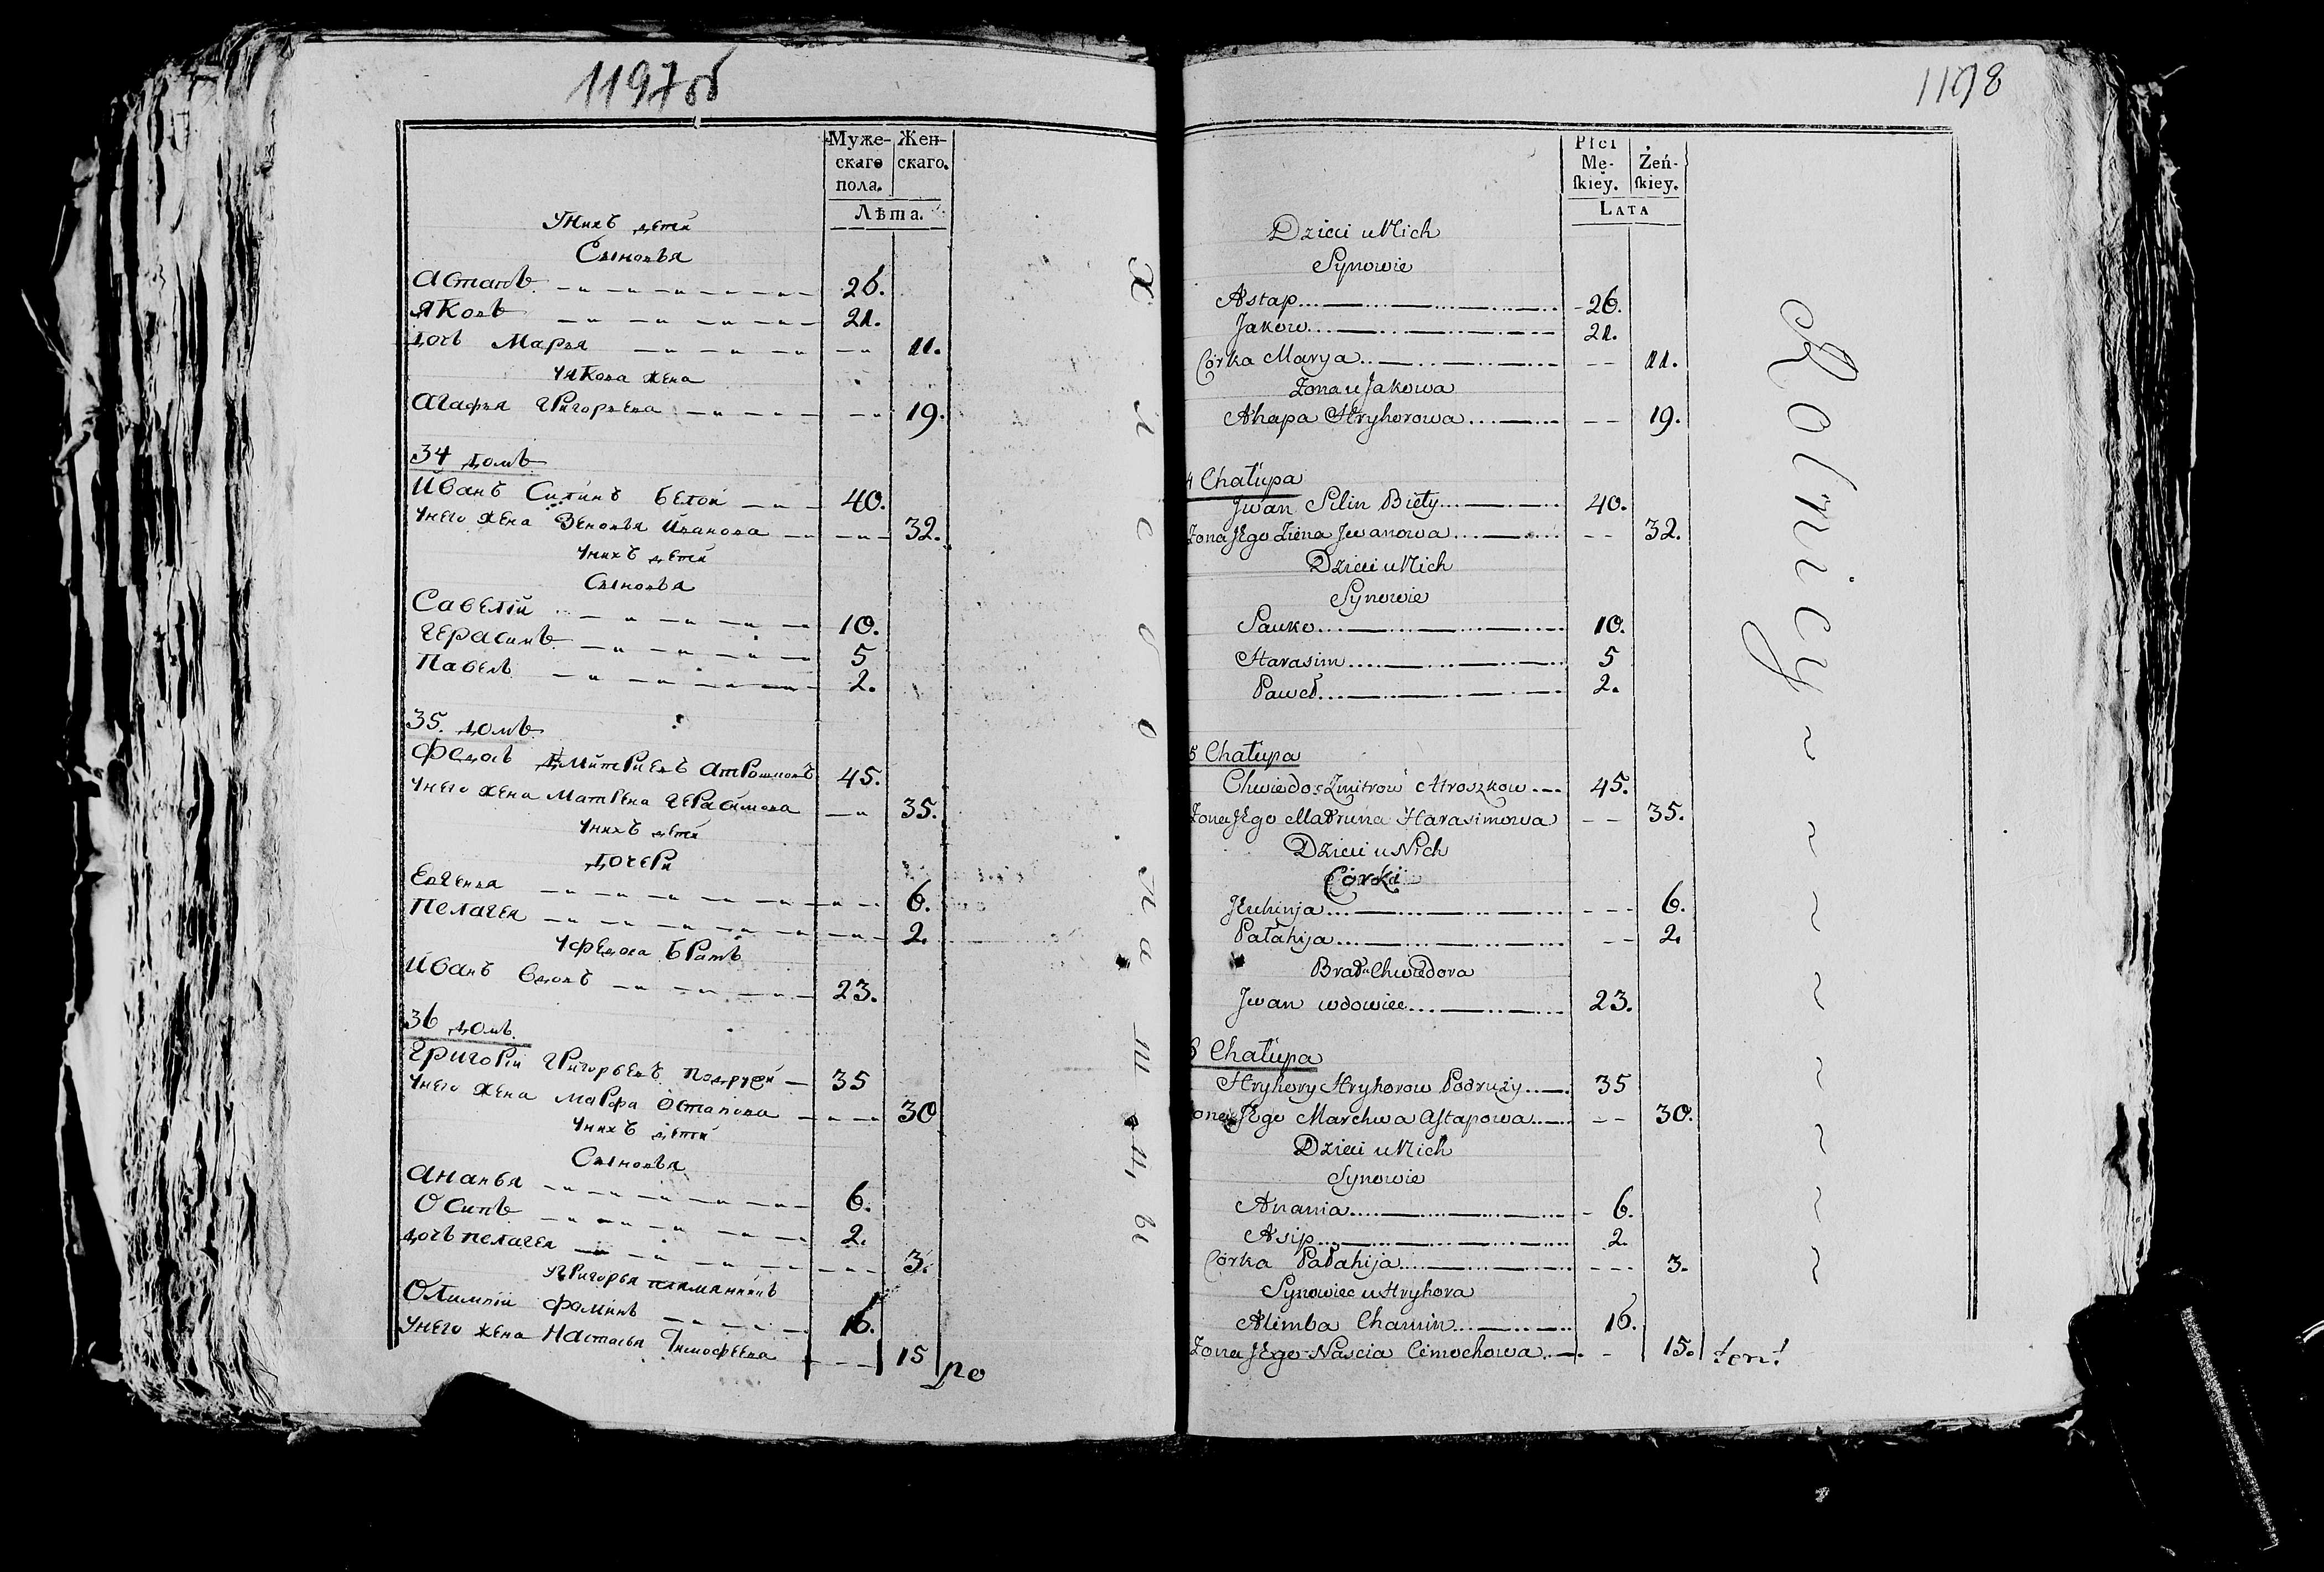 1197об
Муже- Жен-
скаго скаго.
пола.
Лѣта.
У нихъ дети
Сыновья
Астапъ 26.
Яковъ 21.
дочь Марья 11.
У Якова жена
Агафья Григорьева 19.
34 домъ
Иванъ Силинъ Белои 40.
У него жена Зеновья Иванова 32.
У нихъ дети
Сыновья
Савелiи 10.
Герасимъ 5
Павелъ 2.
35. домъ
Федоръ Дмитриевъ Атрошковъ 45.
У него жена Матрена Герасимова 35.
У нихъ дети
дочери
Евгенья 6.
Пелагея 2.
У Федора братъ
Иванъ вдовъ 23.
36 домъ
Григорiи Григорьевъ Подружи 35
У него жена Марфа Остапова 30
У нихъ дети
Сыновья
Ананья 6.
Осипъ 2.
дочь Пелагея 3.
У Григорья племянникъ
Олимпiи Фоминъ 16.
У него жена Настасья Тимофеева 15
ро
1198
Płci
Mę- Żeń-
skiey. skiey.
LATA
Dzieci u Nich
Synowie
Astap 26.
Jakow 21.
Córka Marya 11.
Żona u Jakowa
Ahapa Hryhorowa 19.
4 Chałupa
Jwan Silin Biely 40.
Żona Jego Ziena Jwanowa 32.
Dzieci u Nich
Synowie
Sauko 10.
Harasim 5
Paweł 2.
5 Chałupa
Chwiedor Zmitrow Atroszkow 45.
Żona Jego Matruna Harasimowa 35.
Dzieci u Nich
Córki
Jeuhinja 6.
Pałahija 2.
Brat u Chwiedora
Jwan wdowiec 23.
6 Chałupa
Hryhory Hryhorow Podruży 35
ona Jego Marchwa Astapowa 30.
Dzieci u Nich
Synowie
Anania 6.
Asip 2.
Córka Pałahija 3.
Synowiec u Hryhora
Alimba Chamin 16.
Żona Jego Naścia Cimochowa 15.
Rolnicy